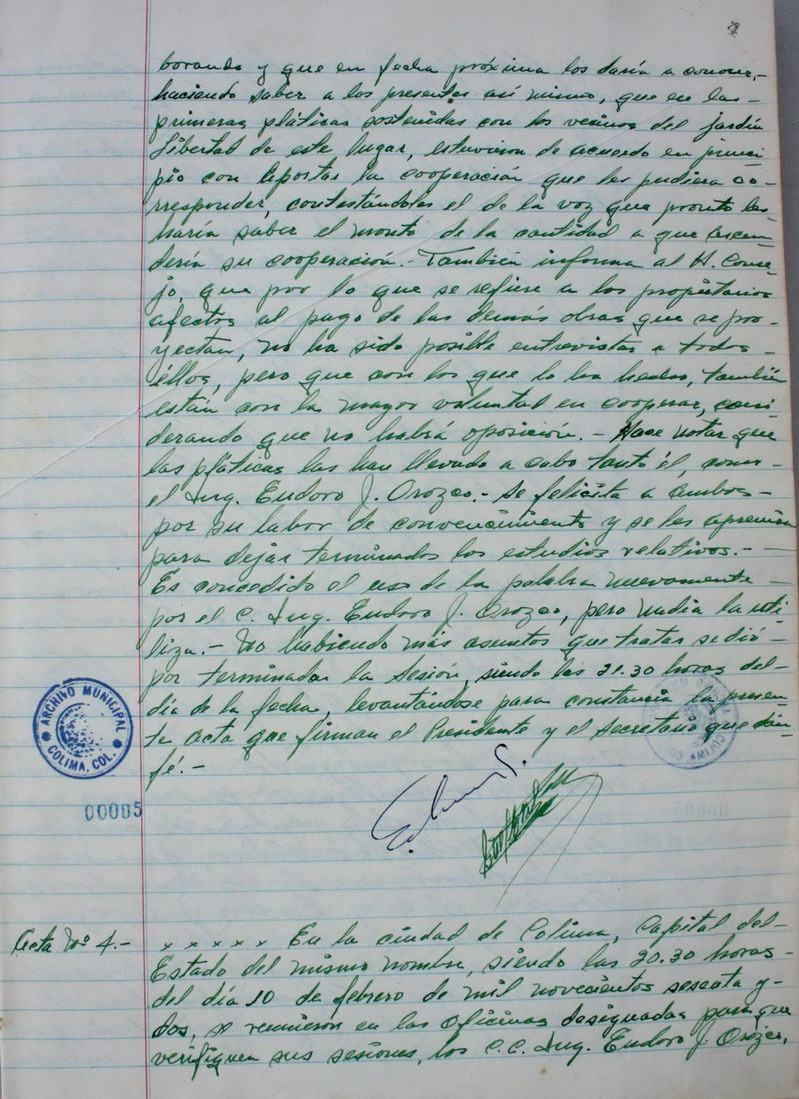 borando y que en fecha próxima los daría a conocer,-
haciendo saber a los presentes así mismo, que en las-
primeras pláticas sostenidas con los vecinos del jardín
Libertad de este lugar, estuvieron de acuerdo en princi-
pio con aportar la cooperación que les pudiera co-
rresponder, contestándoles el de la voz que pronto les
haría saber el monto de la cantidad a que ascen-
dería su cooperación.- También informa al H. Conse-
jo, que por lo que se refiere a los propietarios
afectos al pago de las demás obras que se pro-
yectan, no ha sido posible entrevistar a todos-
éllos, pero que con los que lo ha hecho, también
están con la mayor voluntad en cooperar, consi-
derando que no habrá oposición.- Hace notar que
las pláticas las han llevado a cabo tanto él, como-
el Ing. Eudoro J. Orozco.- Se felicita a ambos-
por su labor de convencimiento y se les apremia
para dejar terminados los estudios relativos.-
Es concedido el uso de la palabra nuevamente-
por el C. Ing. Eudoro J. Orozco, pero nadie la uti-
liza.- No habiendo más asuntos que tratar se dió-
por terminada la Sesión, siendo las 21.30 horas del-
día de la fecha, levantándose para constancia la presen-
te acta que firman el Presidente y el Secretario que dán
fé.-
ARCHIVO MUNICIPAL
COLIMA, COL.
00005
Acta Nº 4.- x x x x x En la ciudad de Colima, Capital del-
Estado del mismo nombre, siendo las 20.30 horas-
del día 10 de febrero de mil novecientos sesenta y-
dos, se reunieron en las oficinas designadas para que
verifiquen sus sesiones, los C.C. Ing. Eudoro J. Orozco,